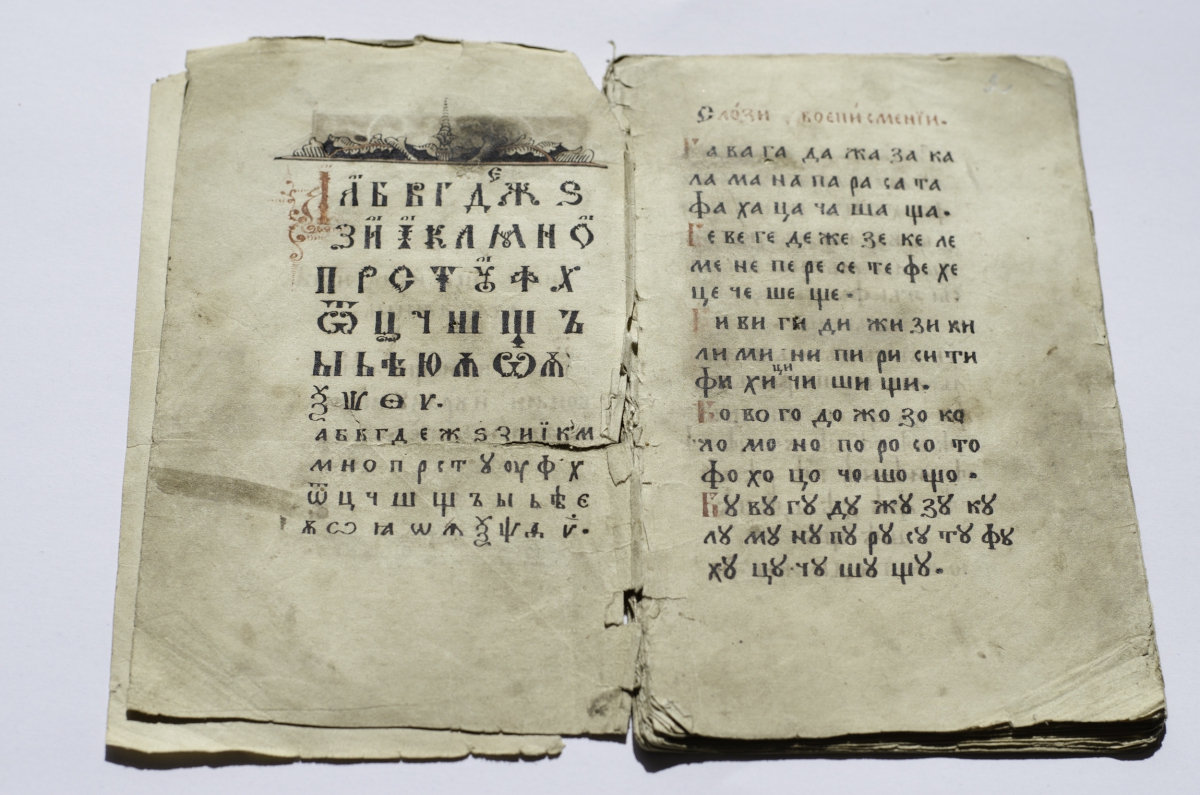 А Б В Г Д Е Ж Ѕ
З И І К Л М Н О
П Р С Т Ꙋ Ф Х
Ѿ Ц Ч Ш Щ Ъ
Ы Ь Ѣ Ю Ѫ Ѡ Ѧ
Ѯ Ѱ Ѳ Ѵ.
а б в г д е ж ѕ з и ї к м
м н о п р с т ꙋ оу ф х
ѿ ц ч ш щ ъ ы ь ѣ є
ѫ ѡ ꙗ ѡ ѧ ѯ ѱ ѳ ѵ.
Слози воеписмениїи.
Ба ва га да жа за ка
ла ма на па ра са та
фа ха ца ча ша ща.
Бе ве ге де же зе ке ле
ме не пе ре се те фе хе
це че ше ще.
Би ви ги ди жи зи ки
ли ми ни пи ри си ти
фи хи ци чи ши щи.
Бо во го до жо зо ко
ло мо но по ро со то
фо хо цо чо шо що.
Бꙋ вꙋ гꙋ дꙋ жꙋ зꙋ кꙋ
лꙋ мꙋ нꙋ пꙋ рꙋ сꙋ тꙋ фꙋ
хꙋ цꙋ чꙋ шꙋ щꙋ.